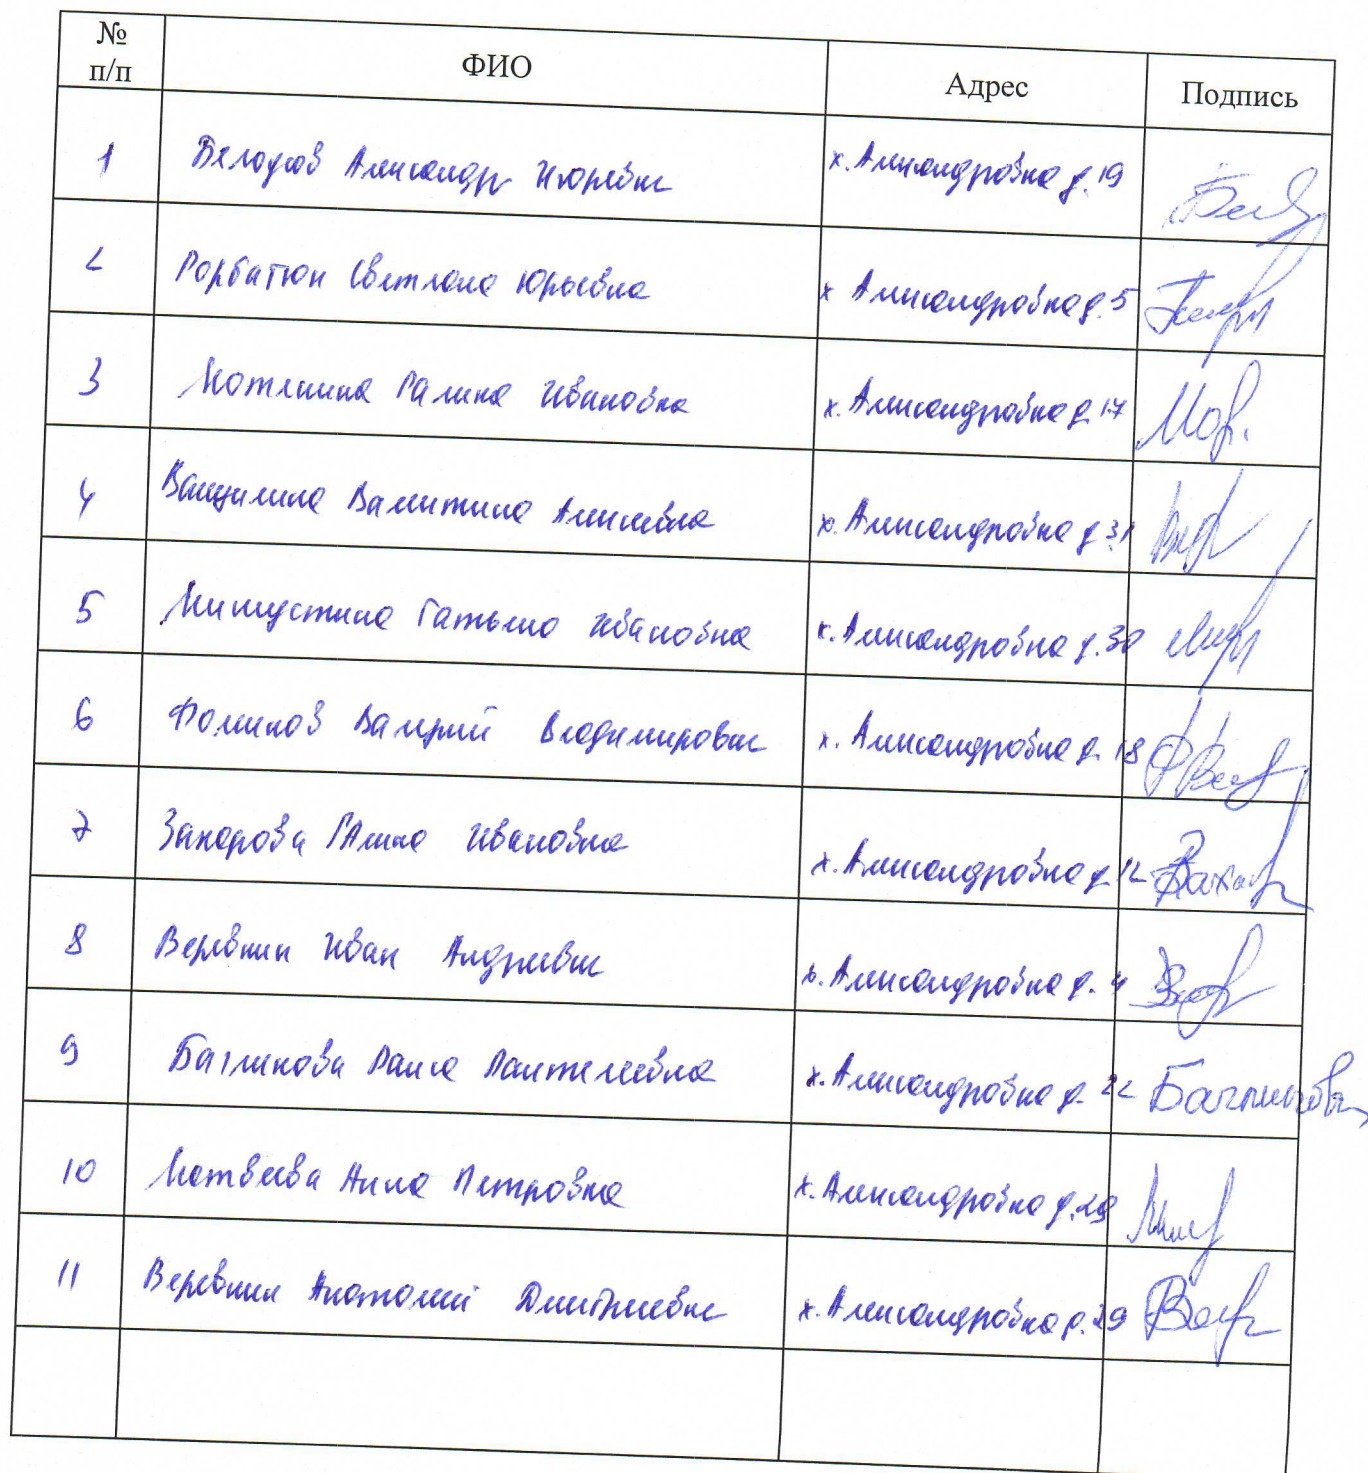 № п/п ФИО Адрес Подпись
1 Белоусов Александр Игоревич х. Александровка д. 19
2 Горбатюк Светлана Юрьевна х Александровка д. 5
3 Галина Ивановна х. Александровка д. 17
4 Ващилина Валентина Алексеевна х. Александровка д. 31
5 Мишустина Татьяна Ивановна х. Александровка д. 30
6 Фоминов Валерий Владимирович х. Александровка д. 18
7 Захарова Галина Ивановна х. Александровка д. 12
8 Веревкин Иван Андреевич х. Александровка д. 4
9 Багликова Раиса Пантелеевна х. Александровка д. 22 Багликова
10 Матвеева Анна Петровна х. Александровка д. 29
11 Веревкин Анатолий Дмитриевич х. Александровка д. 29